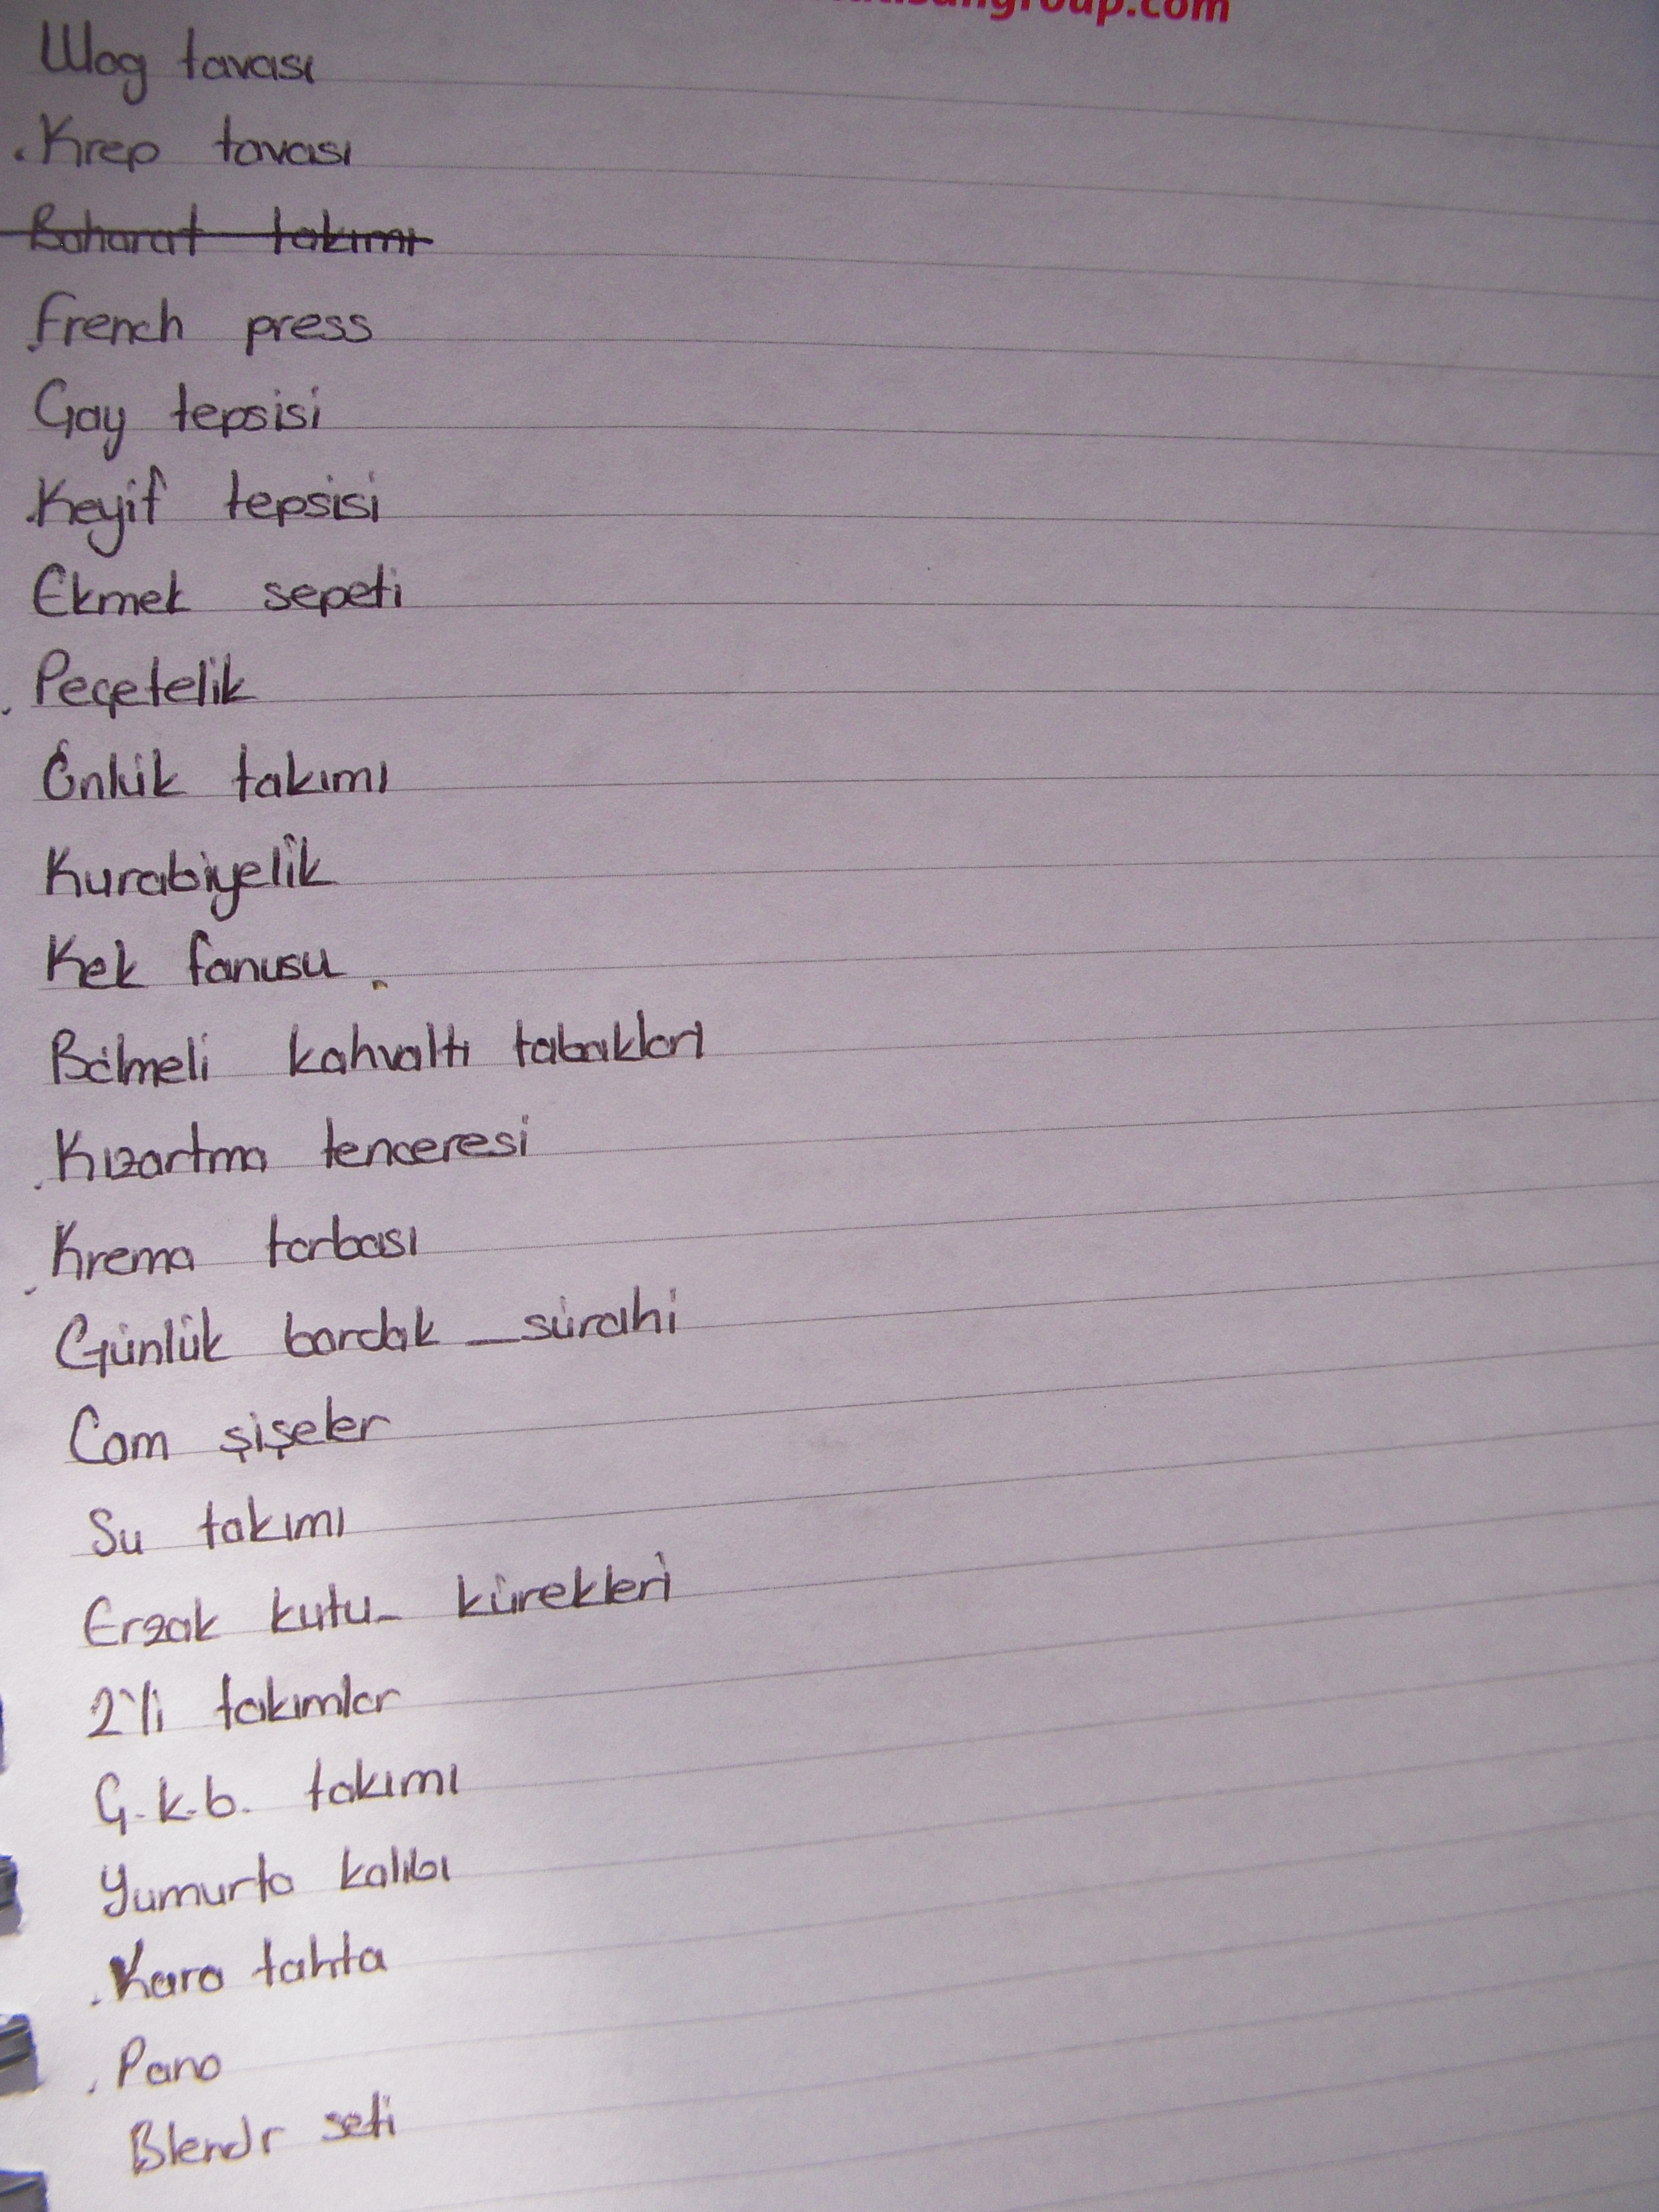 group.com
Wog tavası
.Krep tavası
Baharat takımı
.french press
Çay tepsisi
.Keyif tepsisi
Ekmek sepeti
.Peçetelik
Önlük takımı
Kurabiyelik
Kek fanusu.
Bölmeli kahvaltı tabakları
.Kızartma tenceresi
.Krema torbası
Günlük bardak _ sürahi
Cam şişeler
Su takımı
Erzak kutu_ kürekleri
2'li takımlar
Ç.k.b. takımı
Yumurta kalıbı
.Kara tahta
.Pano
Blendr seti